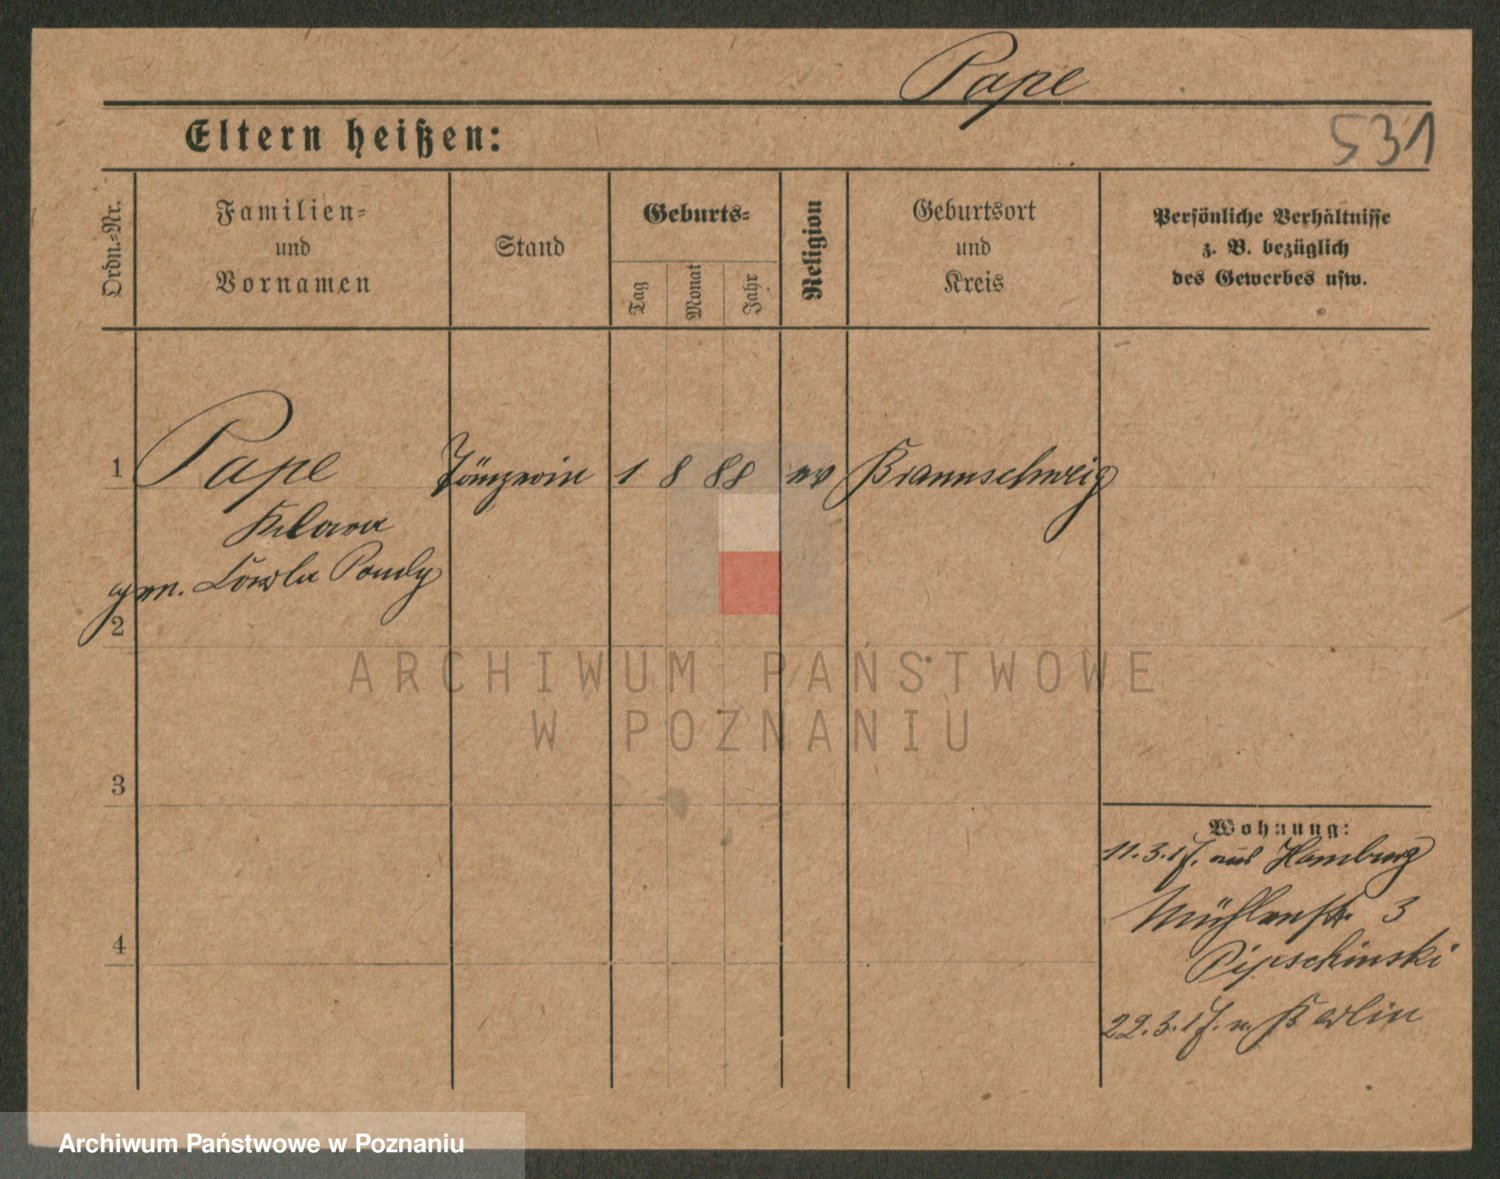 Pape
531
Eltern heißen:
Ordn.=Nr.
Familien=
und
Vornamen
Stand
Geburts=
Tag
Monat
Jahr
Religion
Geburtsort
und
Kreis
Persönliche Verhältnisse
z. B. bezüglich
des Gewerbes usw.
1 Pape Tänzerin 1 8 88 ev Braunschweig
Klara
gen.
2
3
4
Wohnung:
11.3.17. aus Hamburg
Mühlenstr. 3
Pipschinski
22.3.17. n. Berlin
ARCHIWUM PAŃSTWOWE
W POZNANIU
Archiwum Państwowe w Poznaniu